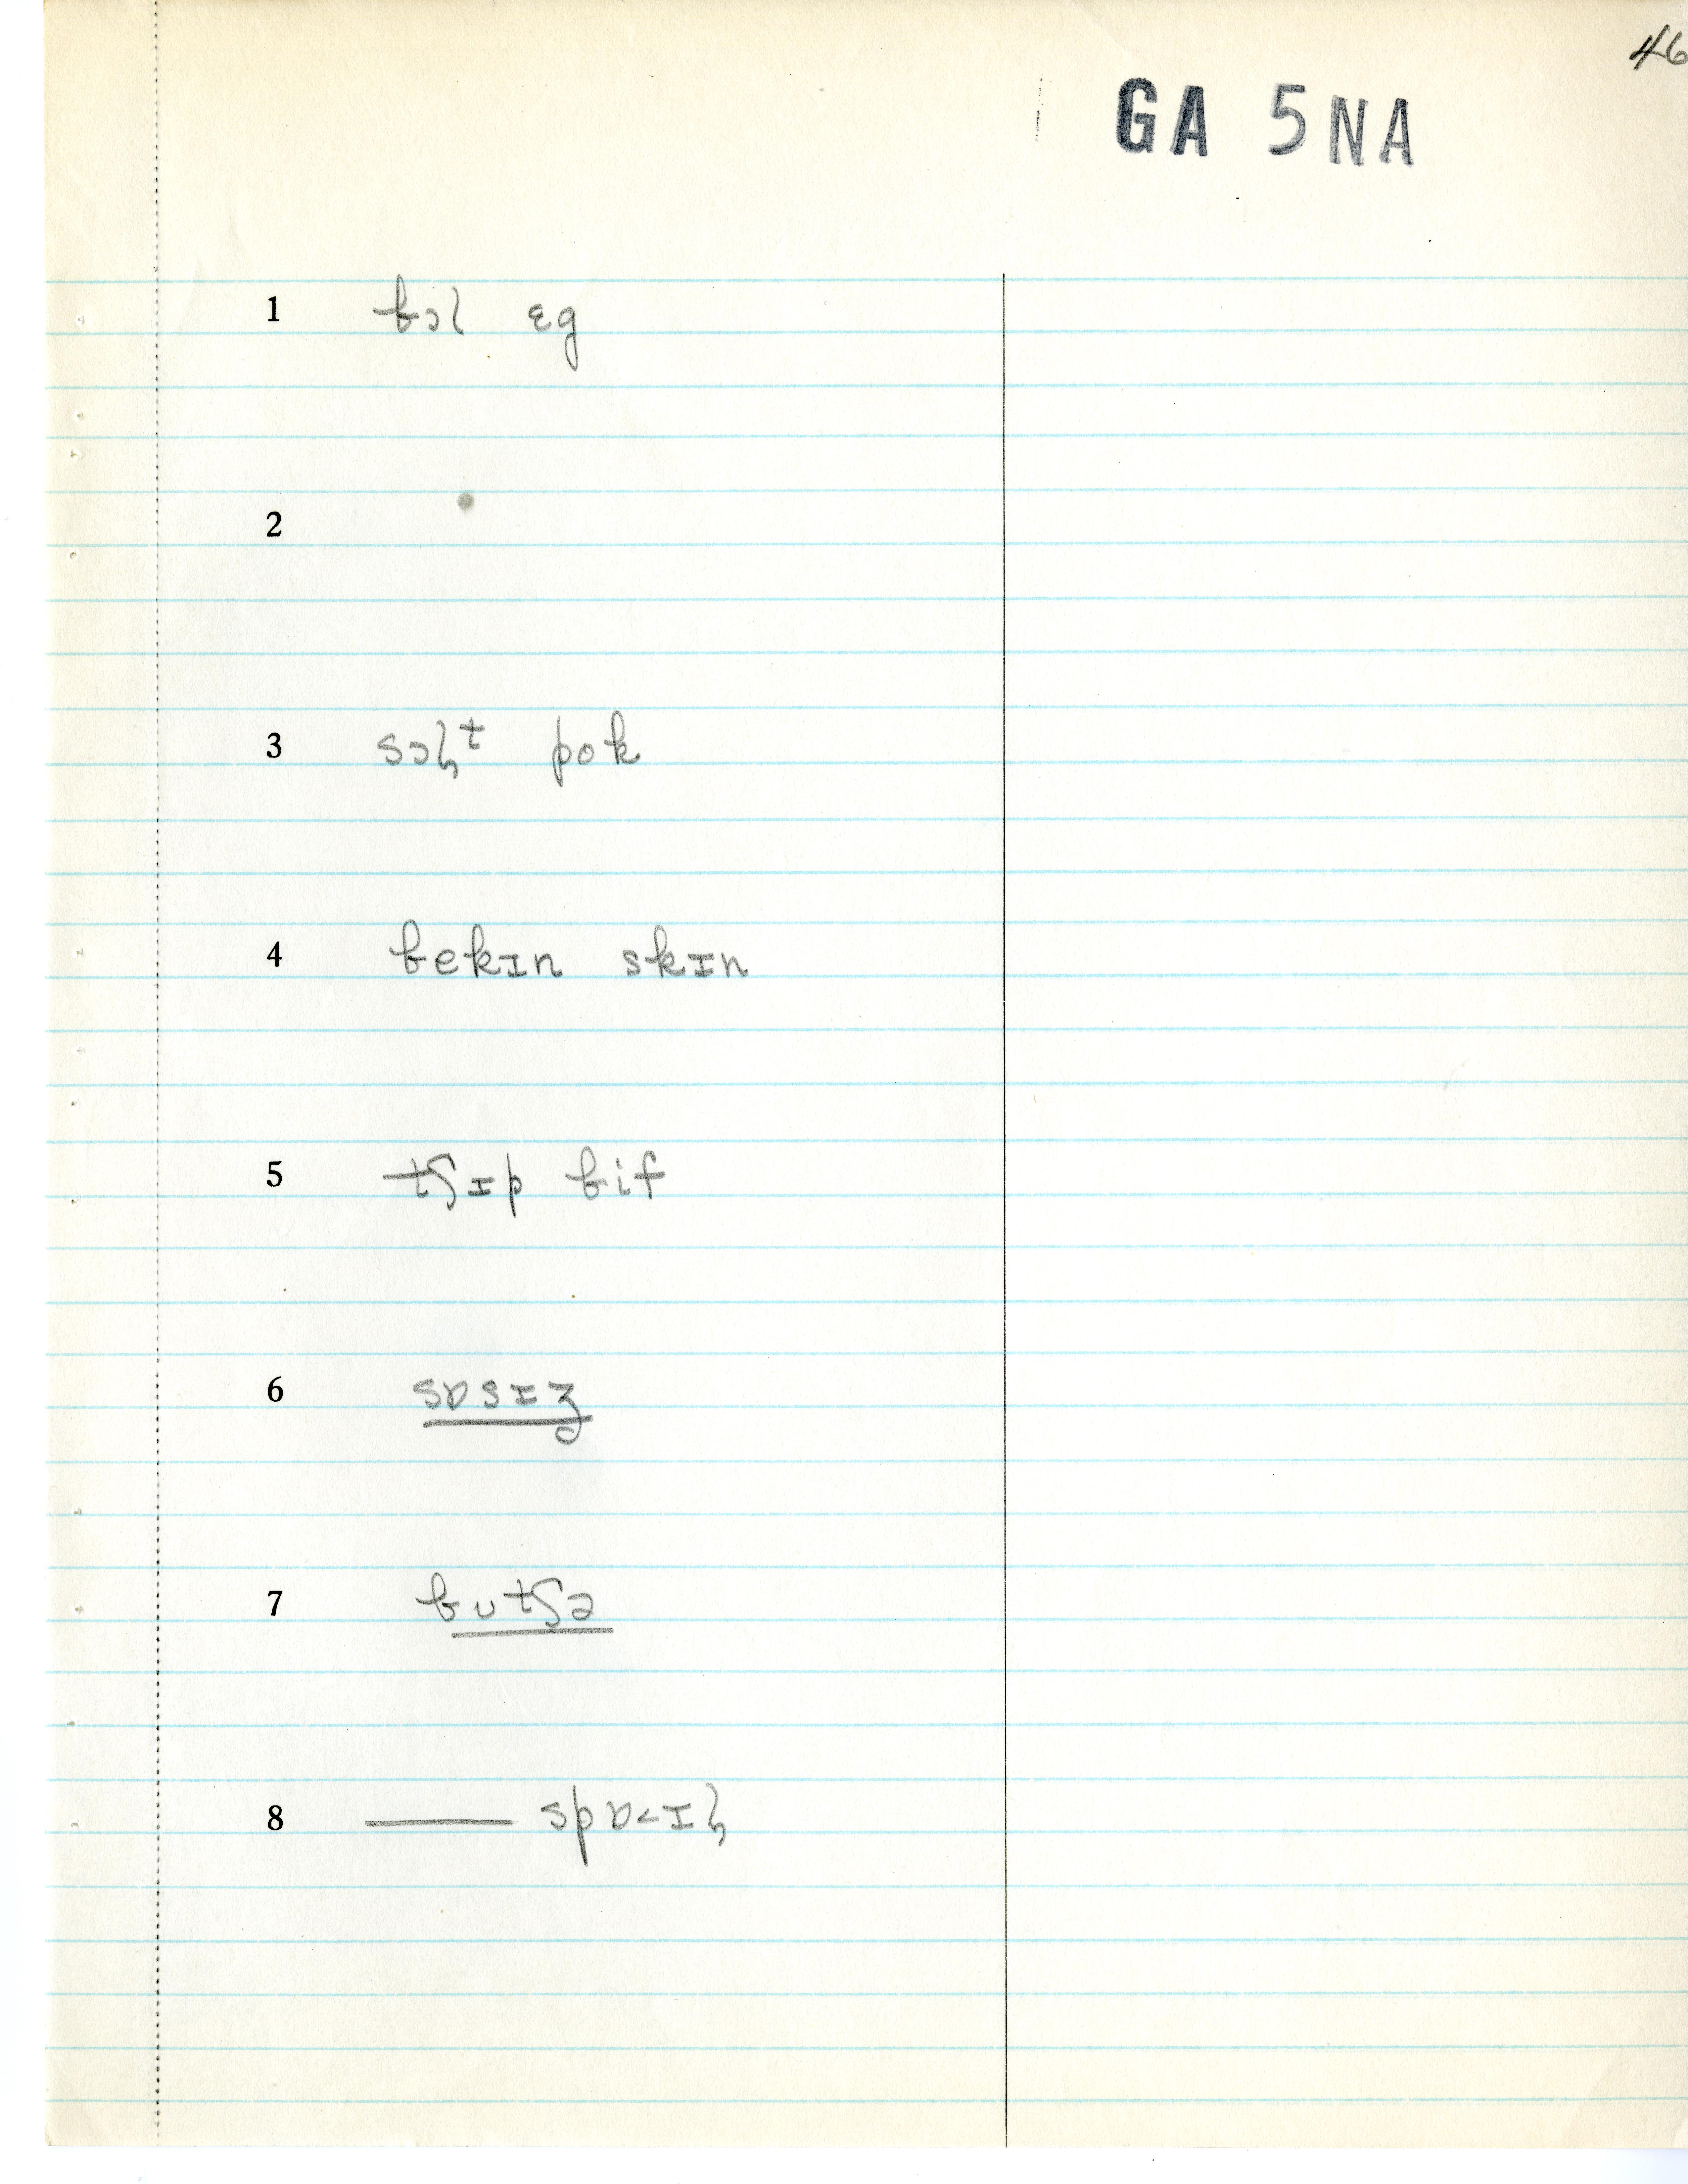 46
GA 5NA
1 bɔl ɛg
2
3 sɔɫᵗ pok
4 bekɪn skɪn
5 tʃɪp bif
6 sɒsɪʒ
7 butʃə
8 —— spɒ˂ɪɫ